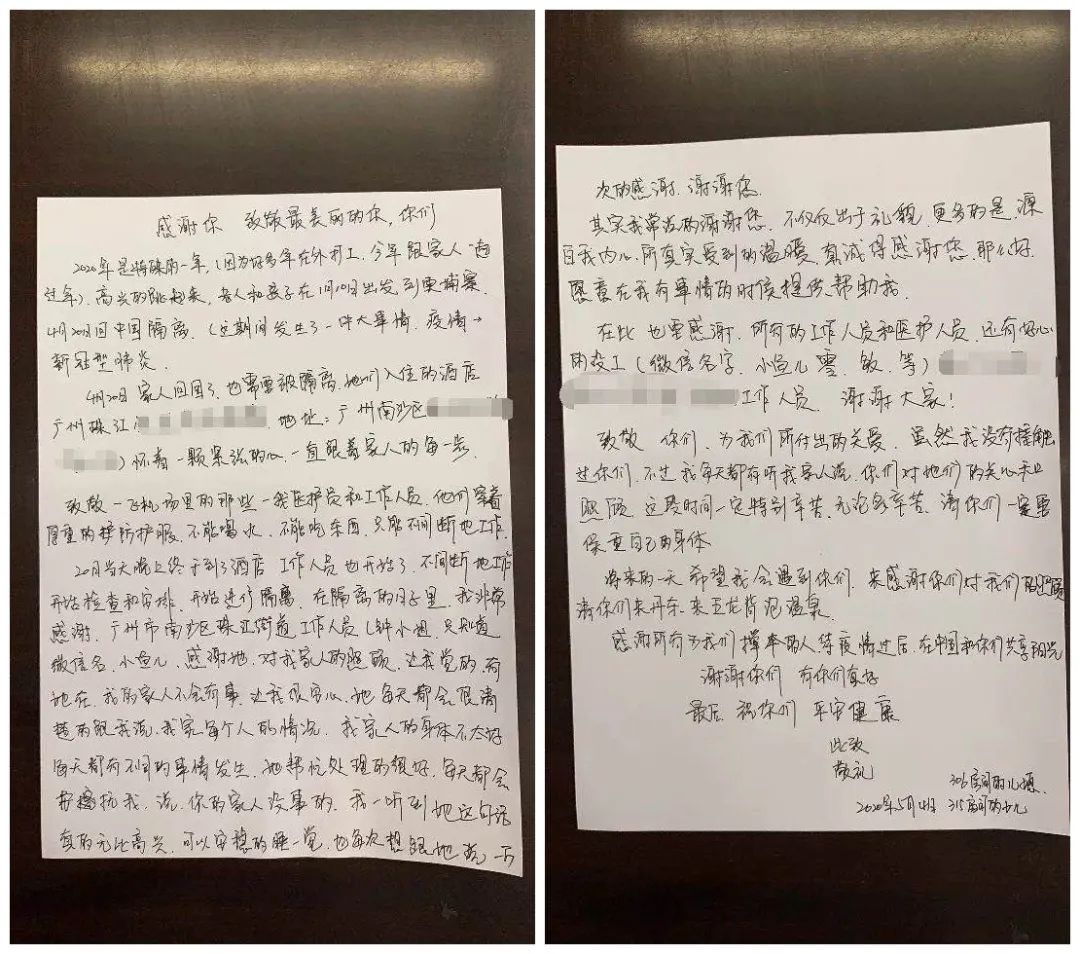 感谢你 致敬最美丽的你、你们
2020年是特殊的一年,(因为好多年在外打工、今年跟家人一起
过年)、高兴的跳起来、家人和孩子在1月10日出发到柬埔寨、
4月20日回中国隔离、(这期间发生了一件大事情、疫情→
新冠型肺炎、
4月20日 家人回国了、也需要被隔离、她们入住的酒店
广州珠江 地址:广州南沙区
)怀着一颗紧张的心、一直跟着家人的每一步、
致敬 飞机场里的那些 医护员和工作人员、他们穿着
厚重的 防护服、不能喝水、不能吃东西、只能不间断地工作、
20日当天晚上终于到了酒店 工作人员也开始了、不间断地工作
开始检查和安排、开始进行隔离、在隔离的日子里、我非常
感谢、广州市南沙区珠江街道工作人员(钟小姐、只知道
微信名、小鱼儿、感谢她、对我家人的照顾、让我觉的、有
她在、我的家人不会有事、让我很安心、她每天都会很清
楚的跟我说、我家每个人的情况、我家人的身体不太好
每天都有不同的事情发生、她帮忙处理的很好、每天都会
我、说、你的家人没事的、我一听到她这句话
真的无比高兴、可以安稳的睡一觉、也每次想跟她说一下
次的感谢、谢谢您、
其实我常说的谢谢您、不仅仅出于礼貌、更多的是、源
自我内心、所真实受到的温暖、真诚得感谢您、那么好、
愿意在我有事情的时候提供帮助我、
在此 也要感谢、所有的工作人员和医护人员、还有好心
的义工(微信名字、小鱼儿 零、敏、等)
工作人员、谢谢大家!
致敬 你们、为我们所付出的关爱、虽然我没有接触
过你们、不过我每天都有听我家人说、你们对她们的关心和
照顾 这段时间一定特别辛苦、无论多辛苦、请你们一定要
保重自己的身体
将来的一天 希望我会遇到你们、来感谢你们对我们的 
请你们来丹东、来五龙背泡温泉
感谢所有为我们撑伞的人、等疫情过后、在中国和你们共享阳光
谢谢你们 有你们真好
最后 祝你们 平安健康
此致
敬礼
306房间的儿媳、
2020年5月4日 315房间的女儿